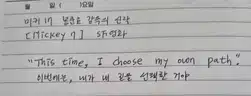 월 일 ( )요일
미키 17
[Mickey 17] SF영화
"This time, I choose my own path".
이번에는, 내가 내 길을 선택할 거야